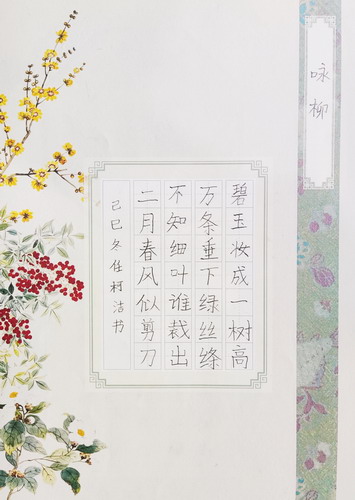 咏柳
碧玉妆成一树高
万条垂下绿丝绦
不知细叶谁裁出
二月春风似剪刀
己巳冬任柯洁书